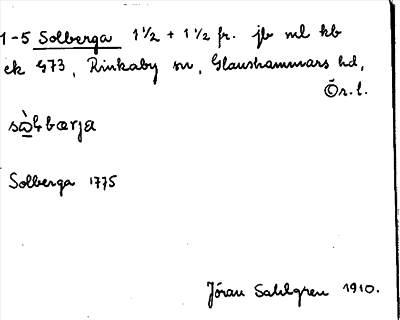 1-5 Solberga 1 1/2 + 1 1/2 fr. jb ml kb
ek 473, Rinkaby sn, Glanshammars hd,
Ör. l.
Solberga 1775
Jöran Sahlgren 1910.